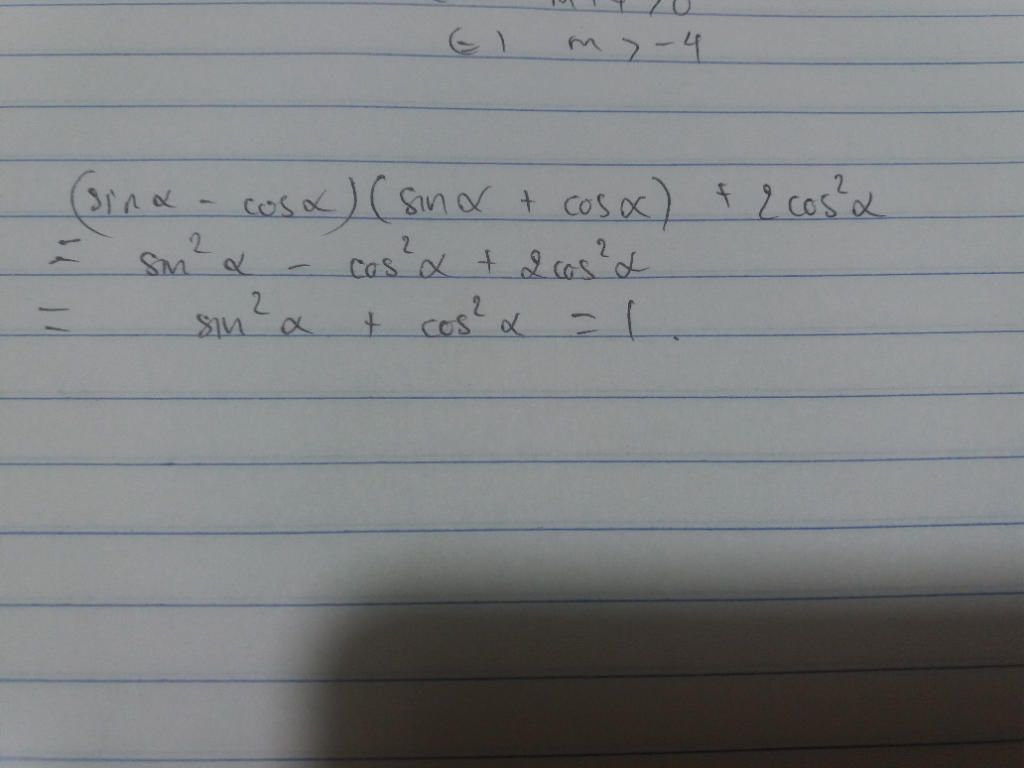 (=) m > -4
(sin α - cos α)(sin α + cos α) + 2 cos² α
= sin² α - cos² α + 2 cos² α
= sin² α + cos² α = 1.